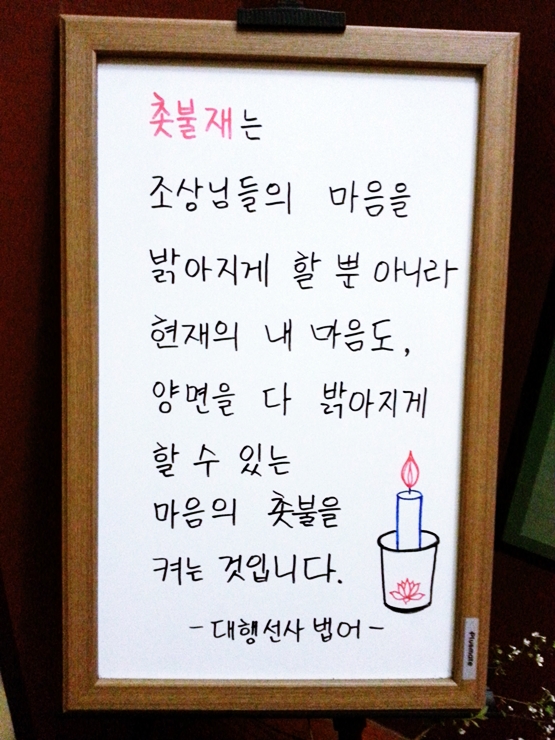 촛불재는
조상님들의 마음을
밝아지게 할 뿐 아니라
현재의 내 마음도,
양면을 다 밝아지게
할 수 있는
마음의 촛불을
켜는 것입니다.
- 대행선사 법어 -
Plusmate